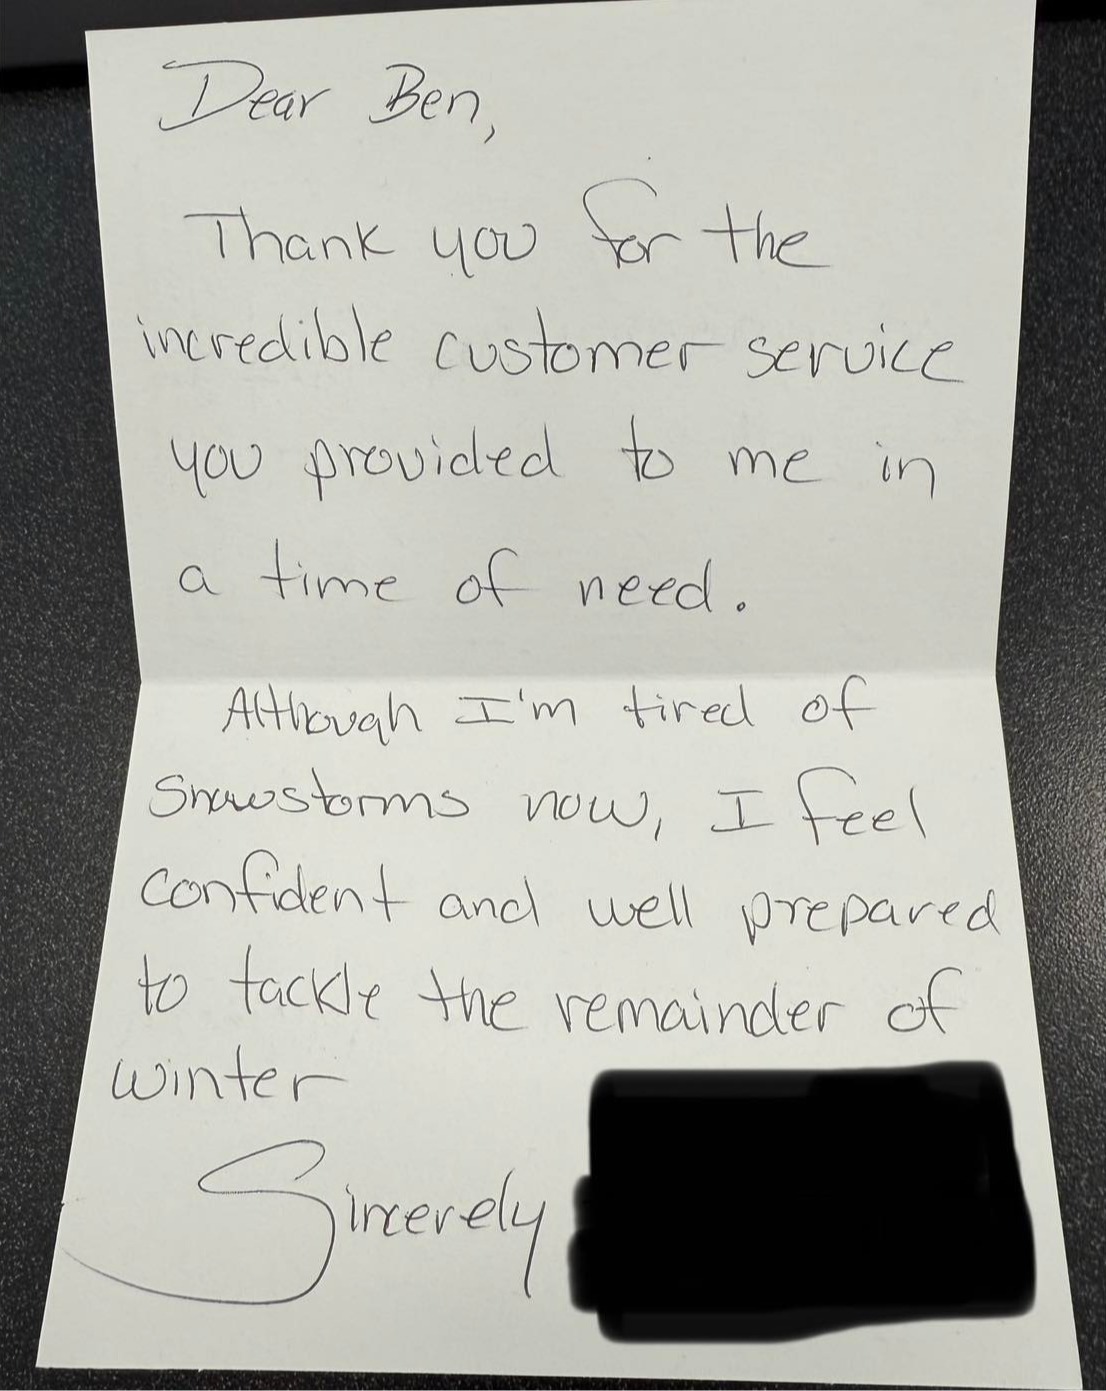 Dear Ben,
Thank you for the
incredible customer service
you provided to me in
a time of need.
Although I'm tired of
snowstorms now, I feel
confident and well prepared
to tackle the remainder of
winter
Sincerely